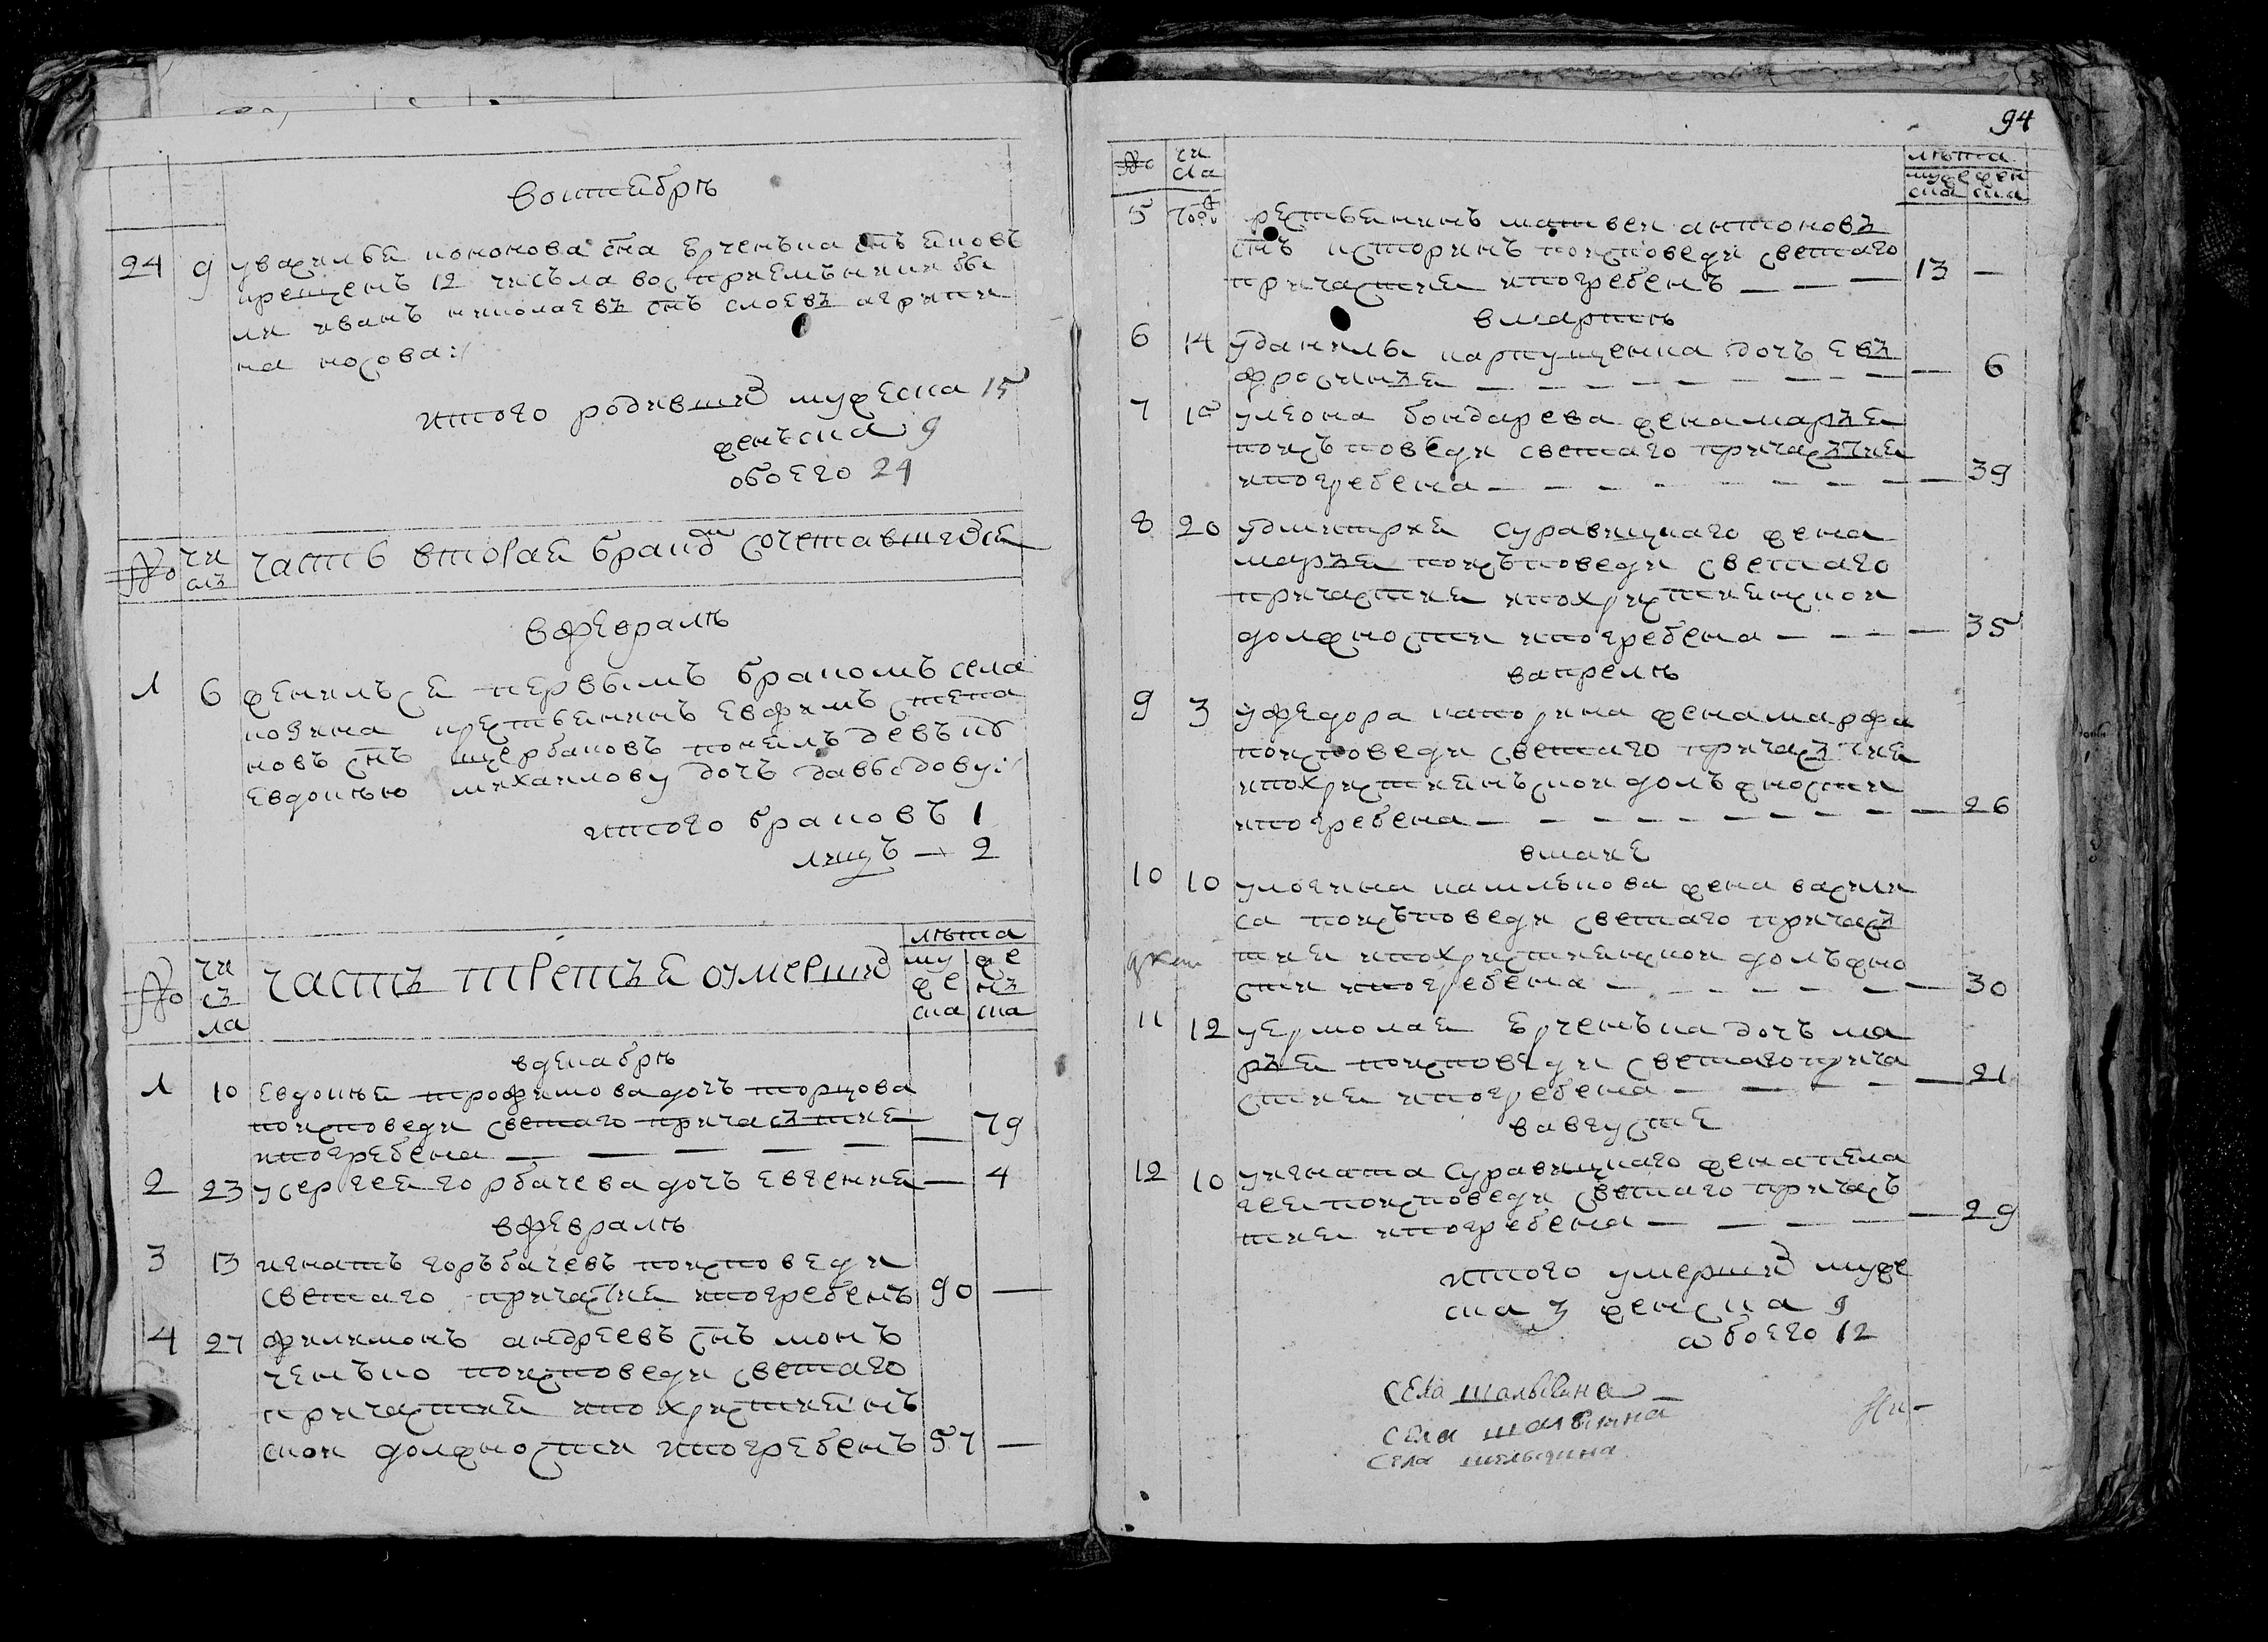 воктебрѣ
24 9 уваѕилье кононова сна ерченъка снъ ековъ
крещенъ 12 чисъла воспрiемъники бы
ли иванъ николаевъ снъ слоевъ агрипи
на носова
итого родившихъ мужеска 15
женъска 9
обоего 24
№ чи слъ часть вторая бракомъ сочетавшихся
вфевралѣ
1 6 женилъсе первымъ бракомъ села
крестьенинъ евфимъ степа
новъ снъ щербаковъ понелъ девъку
евдокъю михаилову дочъ давыдову
итого браковъ 1
лицъ — 2
№ чи съ ла частъ третъе оумершихъ лѣта муже ска женъ ска
вдекабрѣ
1 10 евдокъе трофимова дочъ торцова
поисповеди светаго причасътие
ипогребена — 79
2 23 усергее горбачева дочъ евгение — 4
вфевралѣ
3 13 игнатъ горъбачевъ поисповеди
светаго причастие ипогребенъ 90 —
4 27 филимонъ андреевъ снъ монъ
ченъко поисповеди светаго
причастие ипохристиенъ
скои должности ипогребенъ 57 —
94
№ чи сла лѣта муже ска жен ска
5 тогож крестьенинъ матвеи антоновъ
снъ историнъ поисповеди светаго
причастие ипогребенъ — 13 —
вмартѣ
6 14 уданилы карпущенка дочъ евъ
фросинъе — 6
7 15 улеона бондарева жена маръе
поисъповеди светаго причасътие
ипогребена — 39
8 20 удмитрие суравицкаго жена
маръе поисъповеди светаго
причастие ипохристиенскои
должности ипогребена — 35
вапрелѣ
9 3 уфедора каторина жена марфа
поисповеди светаго причасътие
ипохристиенъскои долъжности
ипогребена — 26
вмаие
10 10 улогина камлыкова жена васили
са поисъповеди светаго причасъ
тие ипохристиенскои долъжно
сти ипогребена — 30
11 12 уермолае ерченъка дочъ ма
ръе поисповеди светаго прича
стие ипогребена — 21
вавгусте
12 10 уигната суравицкаго жена пела
гее поисповеди светаго причасъ
тие ипогребена — 29
итого умершихъ муже
ска 3 женска 9
обоего 12
села шалыгина
села шалыгина
села шалыгина